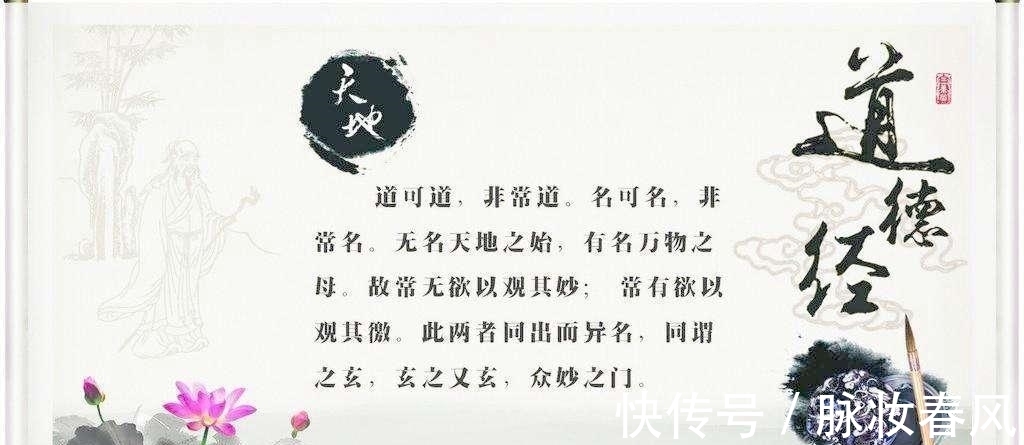 天地
道德经
道可道，非常道。名可名，非
常名。无名天地之始，有名万物之
母。故常无欲以观其妙； 常有欲以
观其徼。此两者同出而异名，同谓
之玄，玄之又玄，众妙之门。
快传号 / 脉妆春风